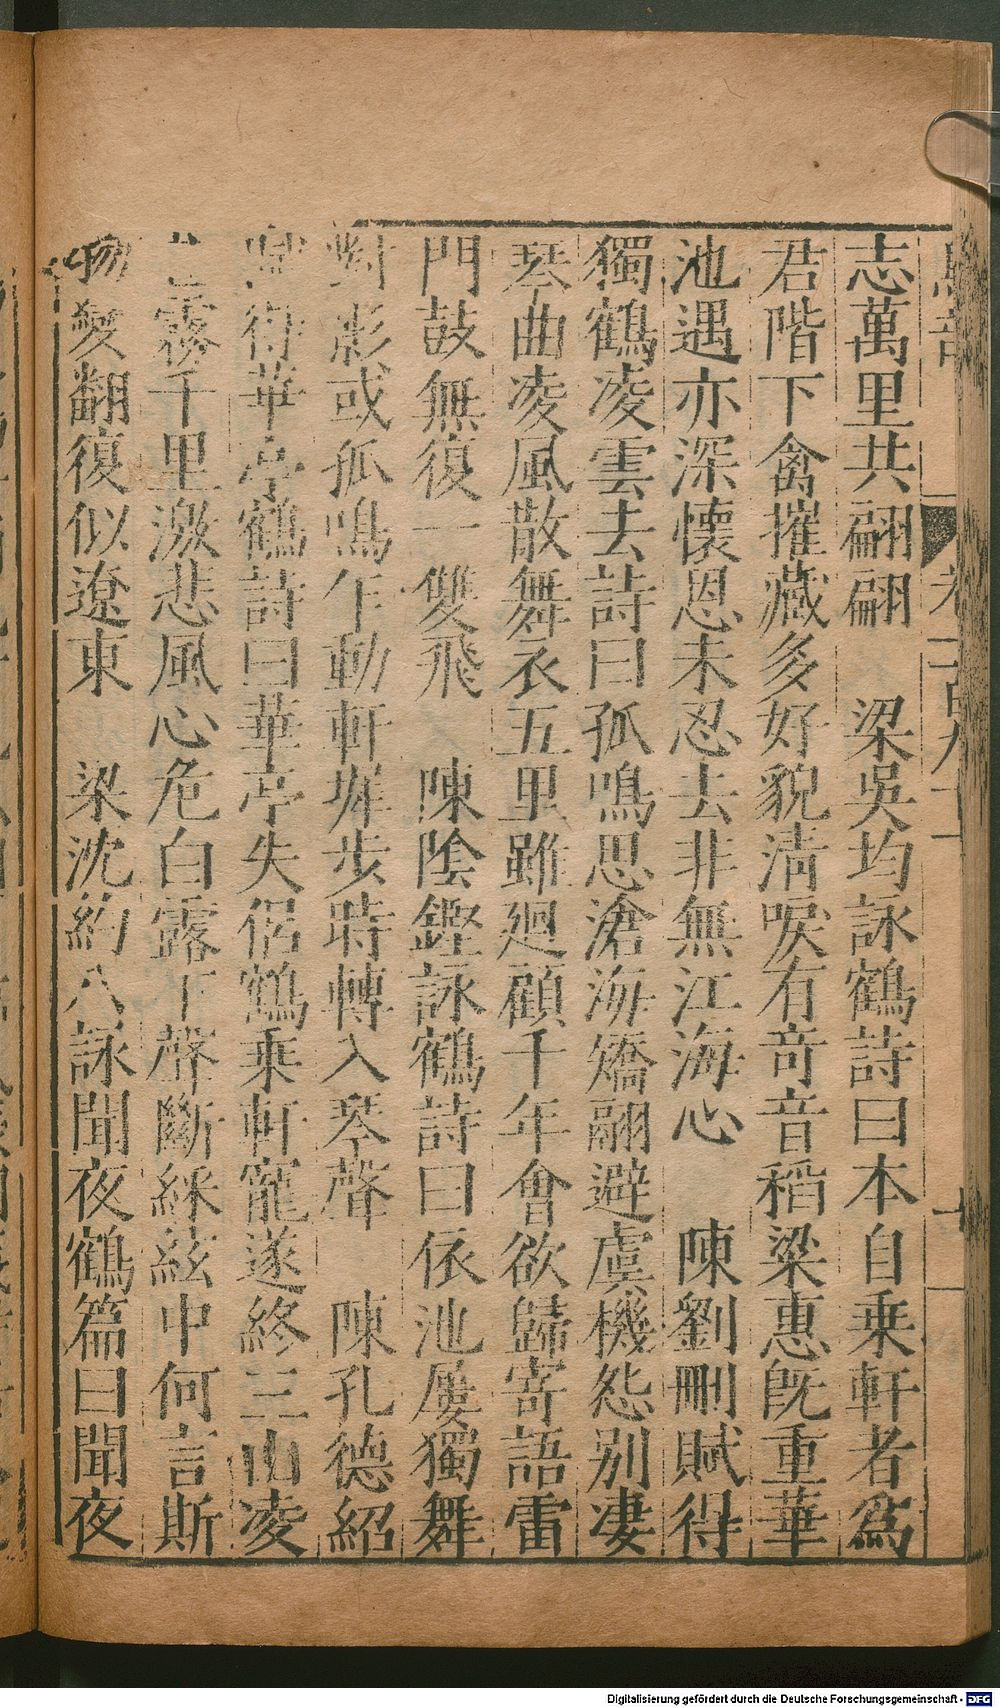 志萬里共翩翩　梁吳均詠鶴詩曰本自乗軒者爲
君階下禽摧藏多好貌淸唳有竒音稻梁惠旣重華
池遇亦深懷恩未忍去非無江海心　陳劉刪賦得
獨鶴凌雲去詩曰孤鳴思滄海矯翮避虞機怨别凄
琴曲凌風散舞衣五里雖廻顧千年會欲歸寄語雷
門鼓無復一雙飛　陳陰鏗詠鶴詩曰依池屢獨舞
對影或孤鳴乍動軒墀步時轉入琴聲　陳孔德紹
賦得華亭鶴詩曰華亭失侶鶴乗軒寵遂終三山凌
霧千里激悲風心危白露下聲斷綵絃中何言斯
物變翻復似遼東　梁沈約八詠聞夜鶴篇曰聞夜
Digitalisierung gefördert durch die Deutsche Forschungsgemeinschaft - DFG